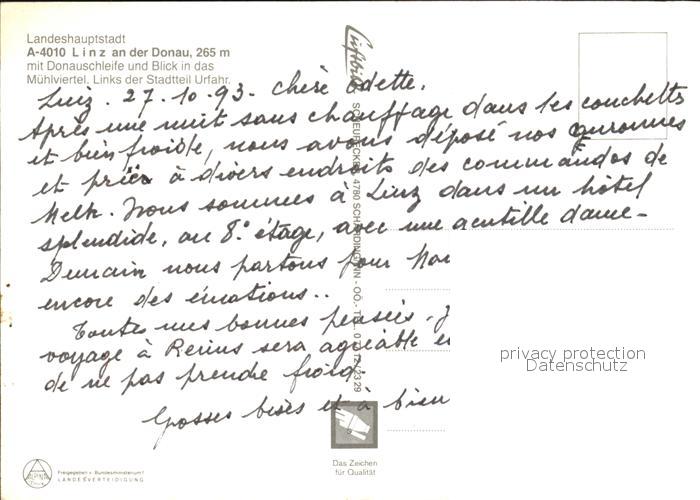 Landeshauptstadt
A-4010 Linz an der Donau, 265 m
mit Donauschleife und Blick in das
Mühlviertel. Links der Stadtteil Urfahr.
Linz. 27.10.93. chère Odette.
Après une nuit sans chauffage dans les couchettes
et bien froide, nous avons déposé nos couronnes
et prié à divers endroits des commandos de
Melk. Nous sommes à Linz dans un hôtel
splendide, au 8.° étage, avec une gentille dame-
Demain nous partons pour
encore des émotions..
Toutes mes bonnes pensées.
voyage à Reims sera agréable
de ne pas prendre froid.
Gosses bises et à bien
Luftbild
4780 SCHÄRDING/INN - OÖ.- TEL. 0 77 12 / 23 29
privacy protection
Datenschutz
Das Zeichen
für Qualität
ALPINE
Freigegeben v. Bundesministerium f.
LANDESVERTEIDIGUNG